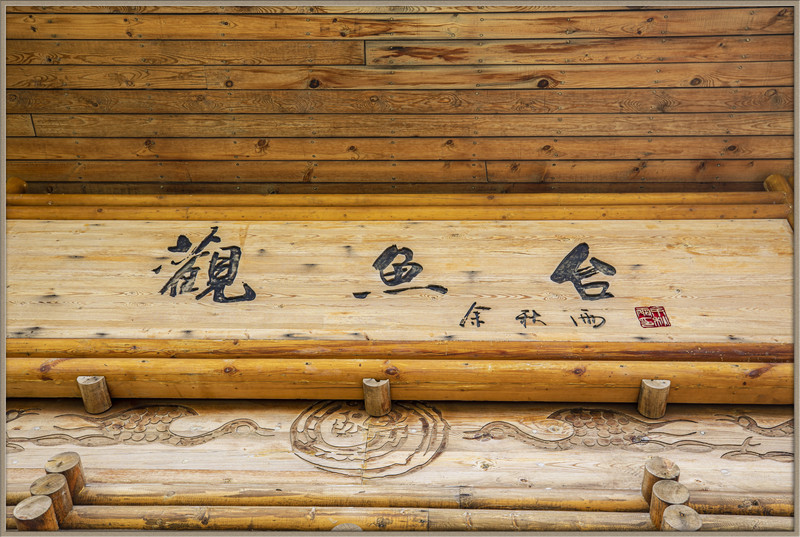 觀魚台
余秋雨